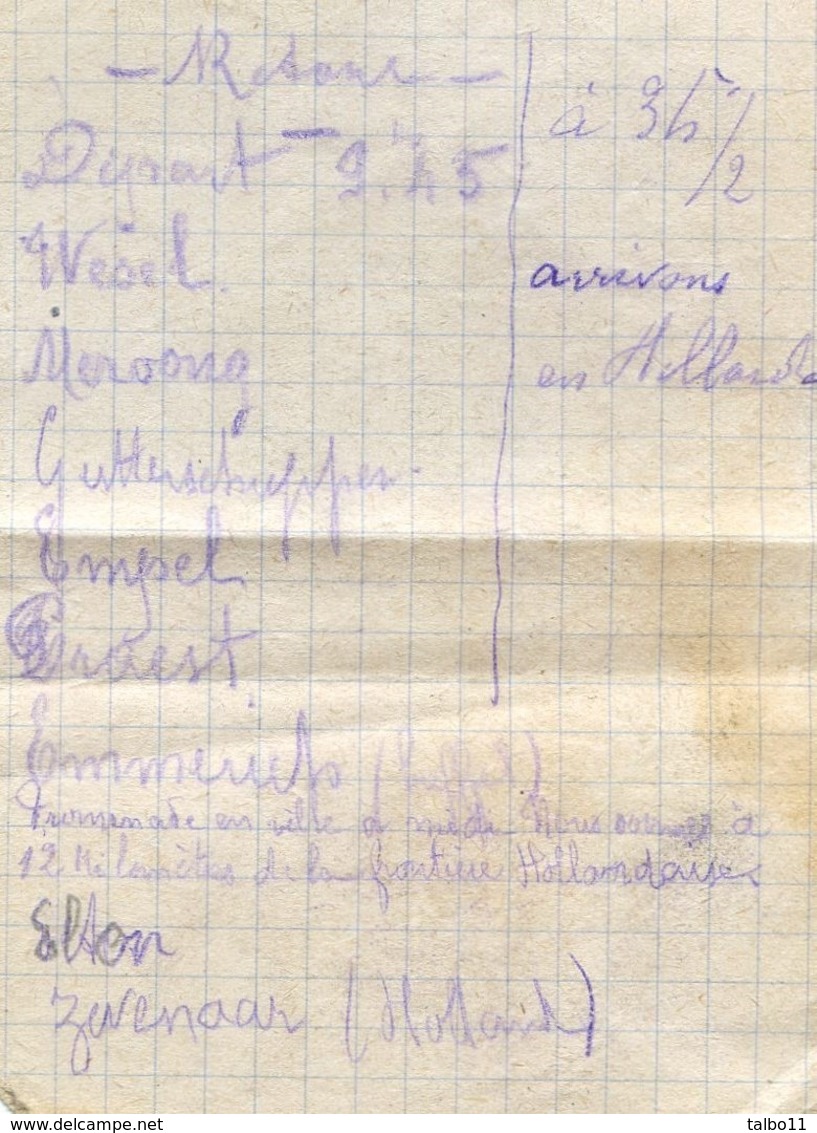 — Retour —
Départ — 9.h 45
Wesel.
Meroong
Gutterschuppen
Empel
Praest
Emmerich (Buffet)
Promenade en ville à midi Nous sommes à
12 Kilomètres de la frontière Hollandaise
Elton
Zevenaar (Holland)
à 3h 1/2
arrivons
en Hollande
delcampe.net
talbo11